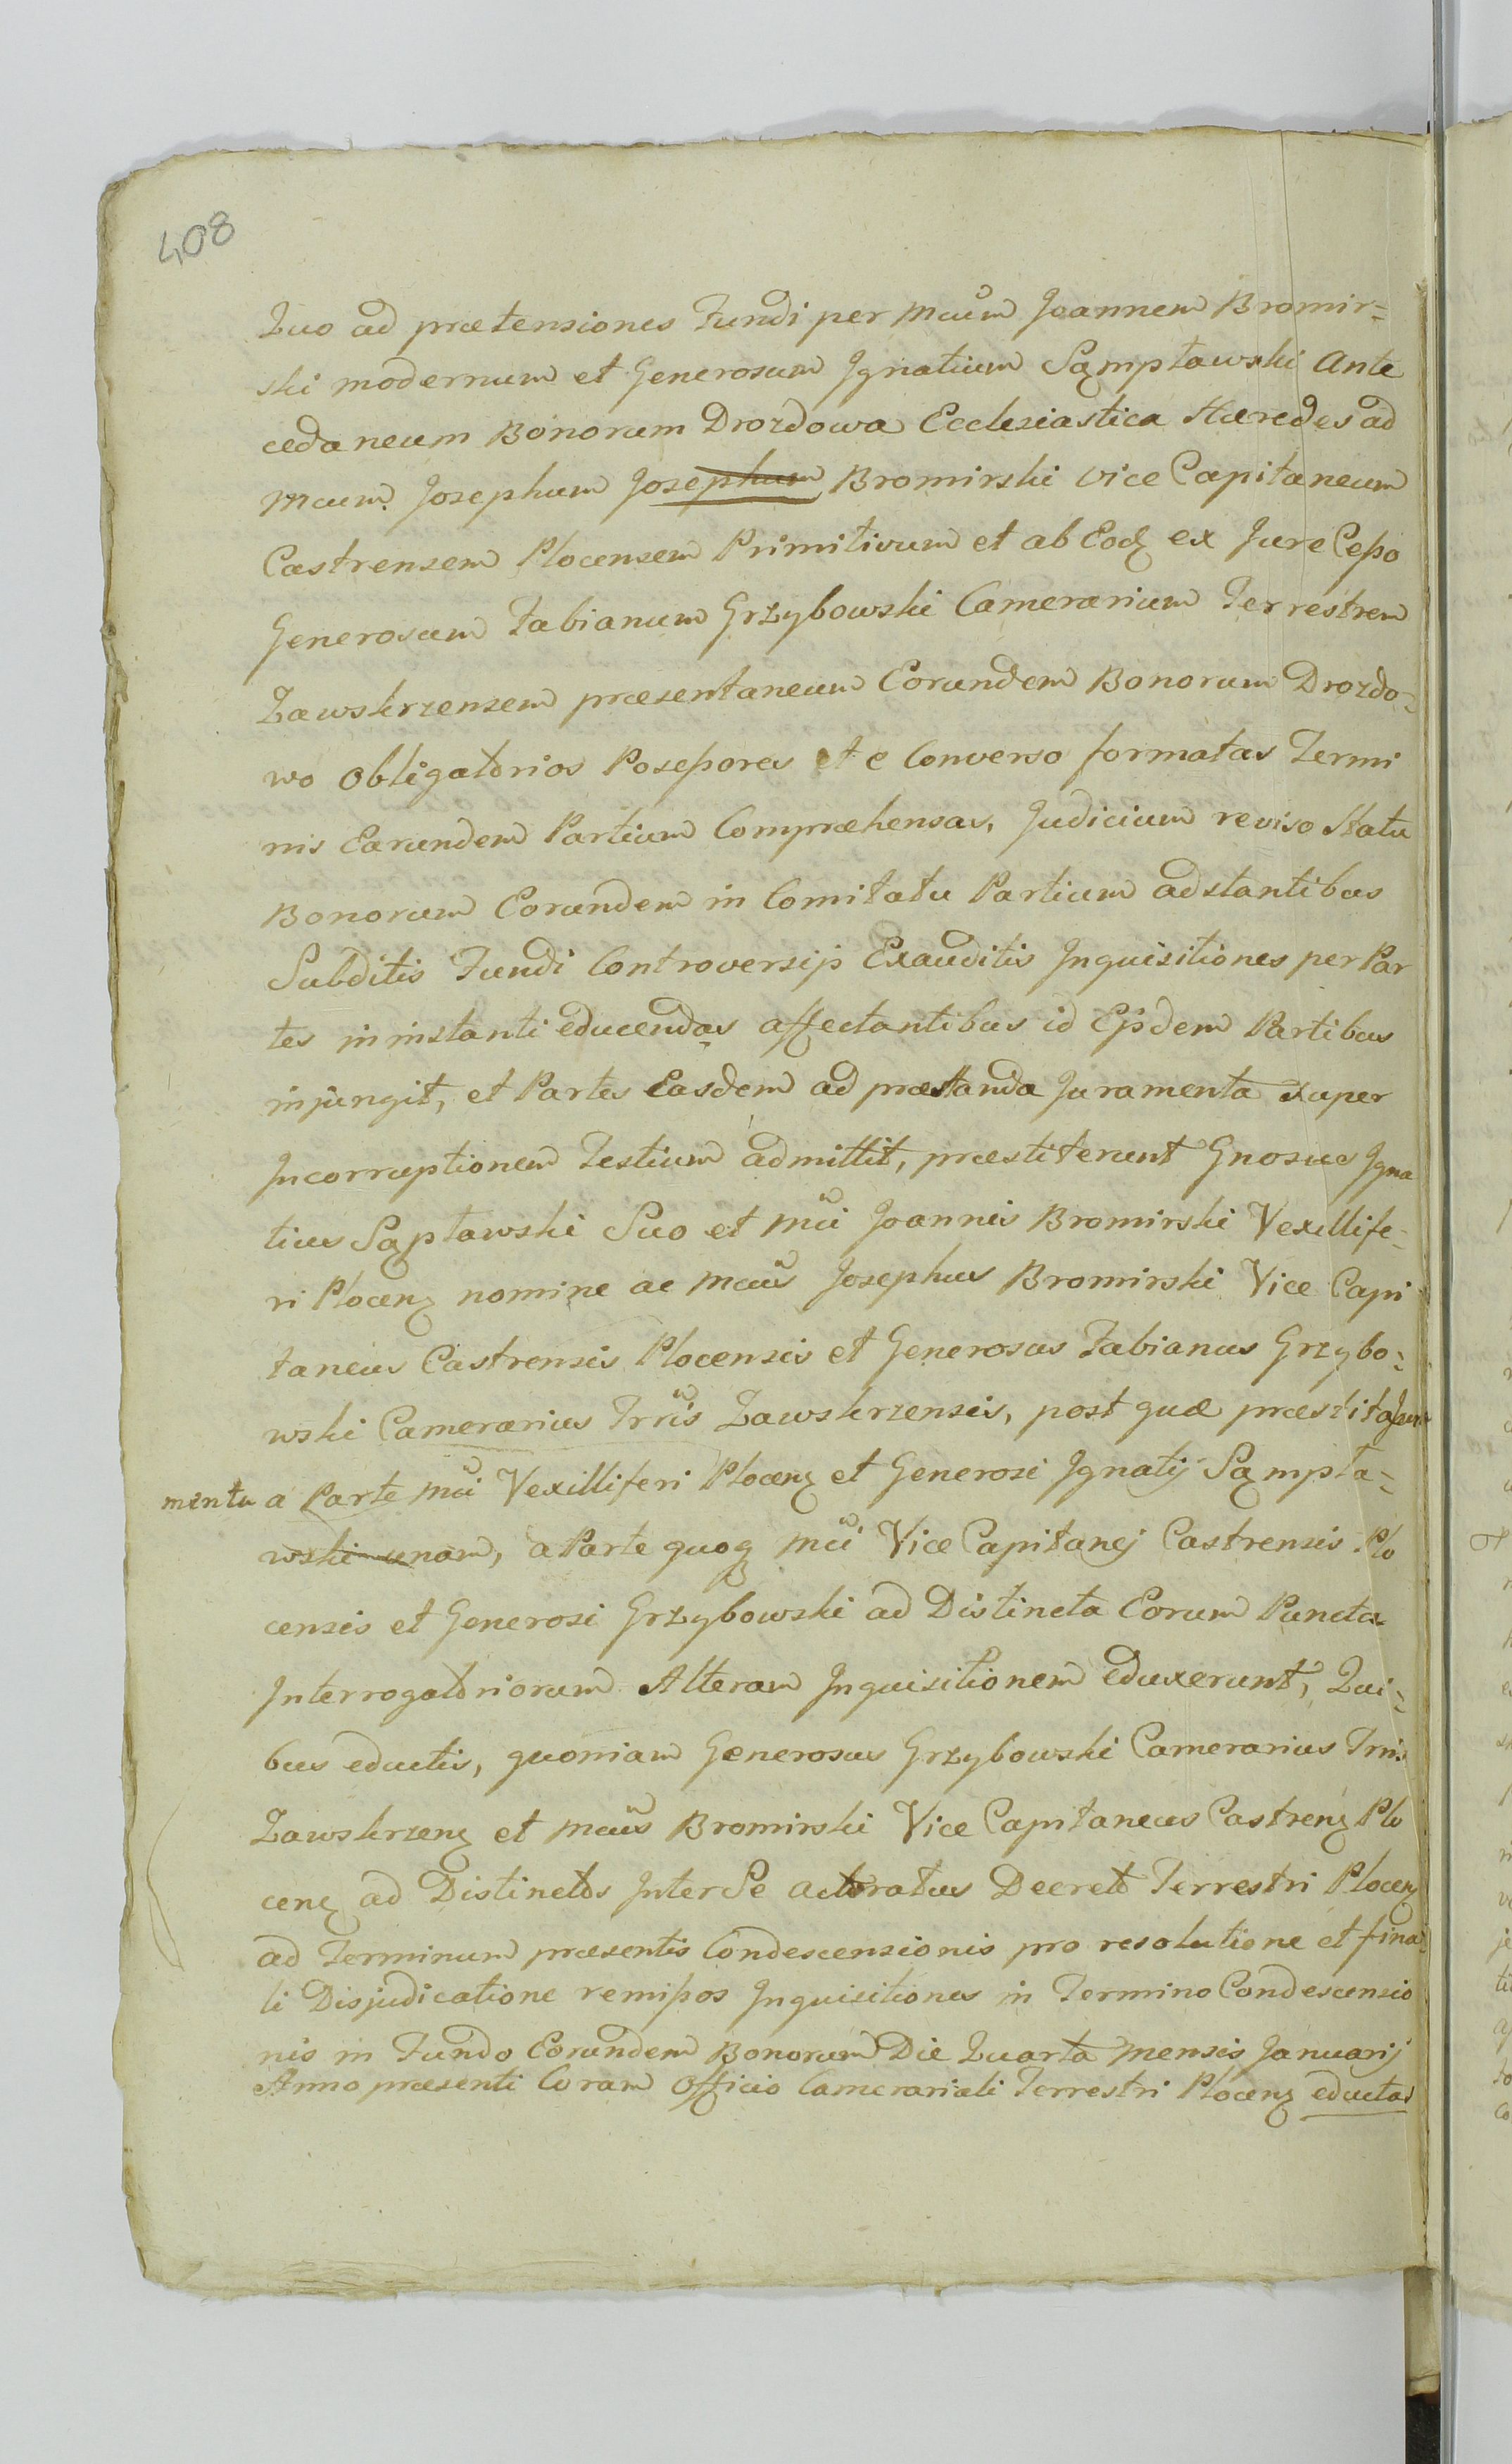 408
Quo ad prætensiones Fundi per Mcum Joannem Bromir=
ski modernum et Generosum Ignatium Sampławski Ante
cedaneum Bonorum Drozdowa Ecclesiastica Hæredes ad
Mcum Josephum Josephum Bromirski Vice Capitaneum
Castrensem Plocensem Primitivum et ab Eodz ex Jure Cesso
Generosum Fabianum Grzybowski Camerarium Terrestrem
Zawskrzensem præsentaneum Eorundem Bonorum Drozdo=
wo Obligatorios Possessores et e Converso formatas Termi
nis Earundem Partium Compræhensas, Judicium reviso Statu
Bonorum Eorundem in Comitatu Partium adstantibus
Subditis Fundi Controversijs Exauditis Inquisitiones per Par
tes in instanti educendas affectantibus id Eisdem Partibus
injungit, et Partes Easdem ad præstanda Juramenta super
Incorruptionem Testium admittit, præstiterunt Gnosus Igna
tius Sąpławski Suo et Mci Joannis Bromirski Vexillife=
ri Plocenz nomine ac Mcus Josephus Bromirski Vice Capi
taneus Castrensis Plocensis et Generosus Fabianus Grzybo=
wski Camerarius Trris Zawskrzensis, post quæ præstita Jura
menta a Parte Mci Vexilliferi Plocenz et Generosi Ignatij Sąmpła=
wski unam, a Parte quoqz Mci Vice Capitanej Castrensis Plo
censis et Generosi Grzybowski ad Distincta Eorum Puncta
Interrogatoriorum Alteram Inquisitionem eduxerunt, Qui=
bus eductis, quoniam Generosus Grzybowski Camerarius Trris
Zawskrzenz et Mcus Bromirski Vice Capitaneus Castrenz Plo
cenz ad Distinctos Inter Se actoratus Decreto Terrestri Plocenz
ad Terminum præsentis Condescensionis pro resolutione et fina
li Disjudicatione remissos Inquisitiones in Termino Condescensio
nis in Fundo Eorundem Bonorum Die Quarta Mensis Januarij
Anno præsenti Coram Officio Camerariali Terrestri Plocenz eductas